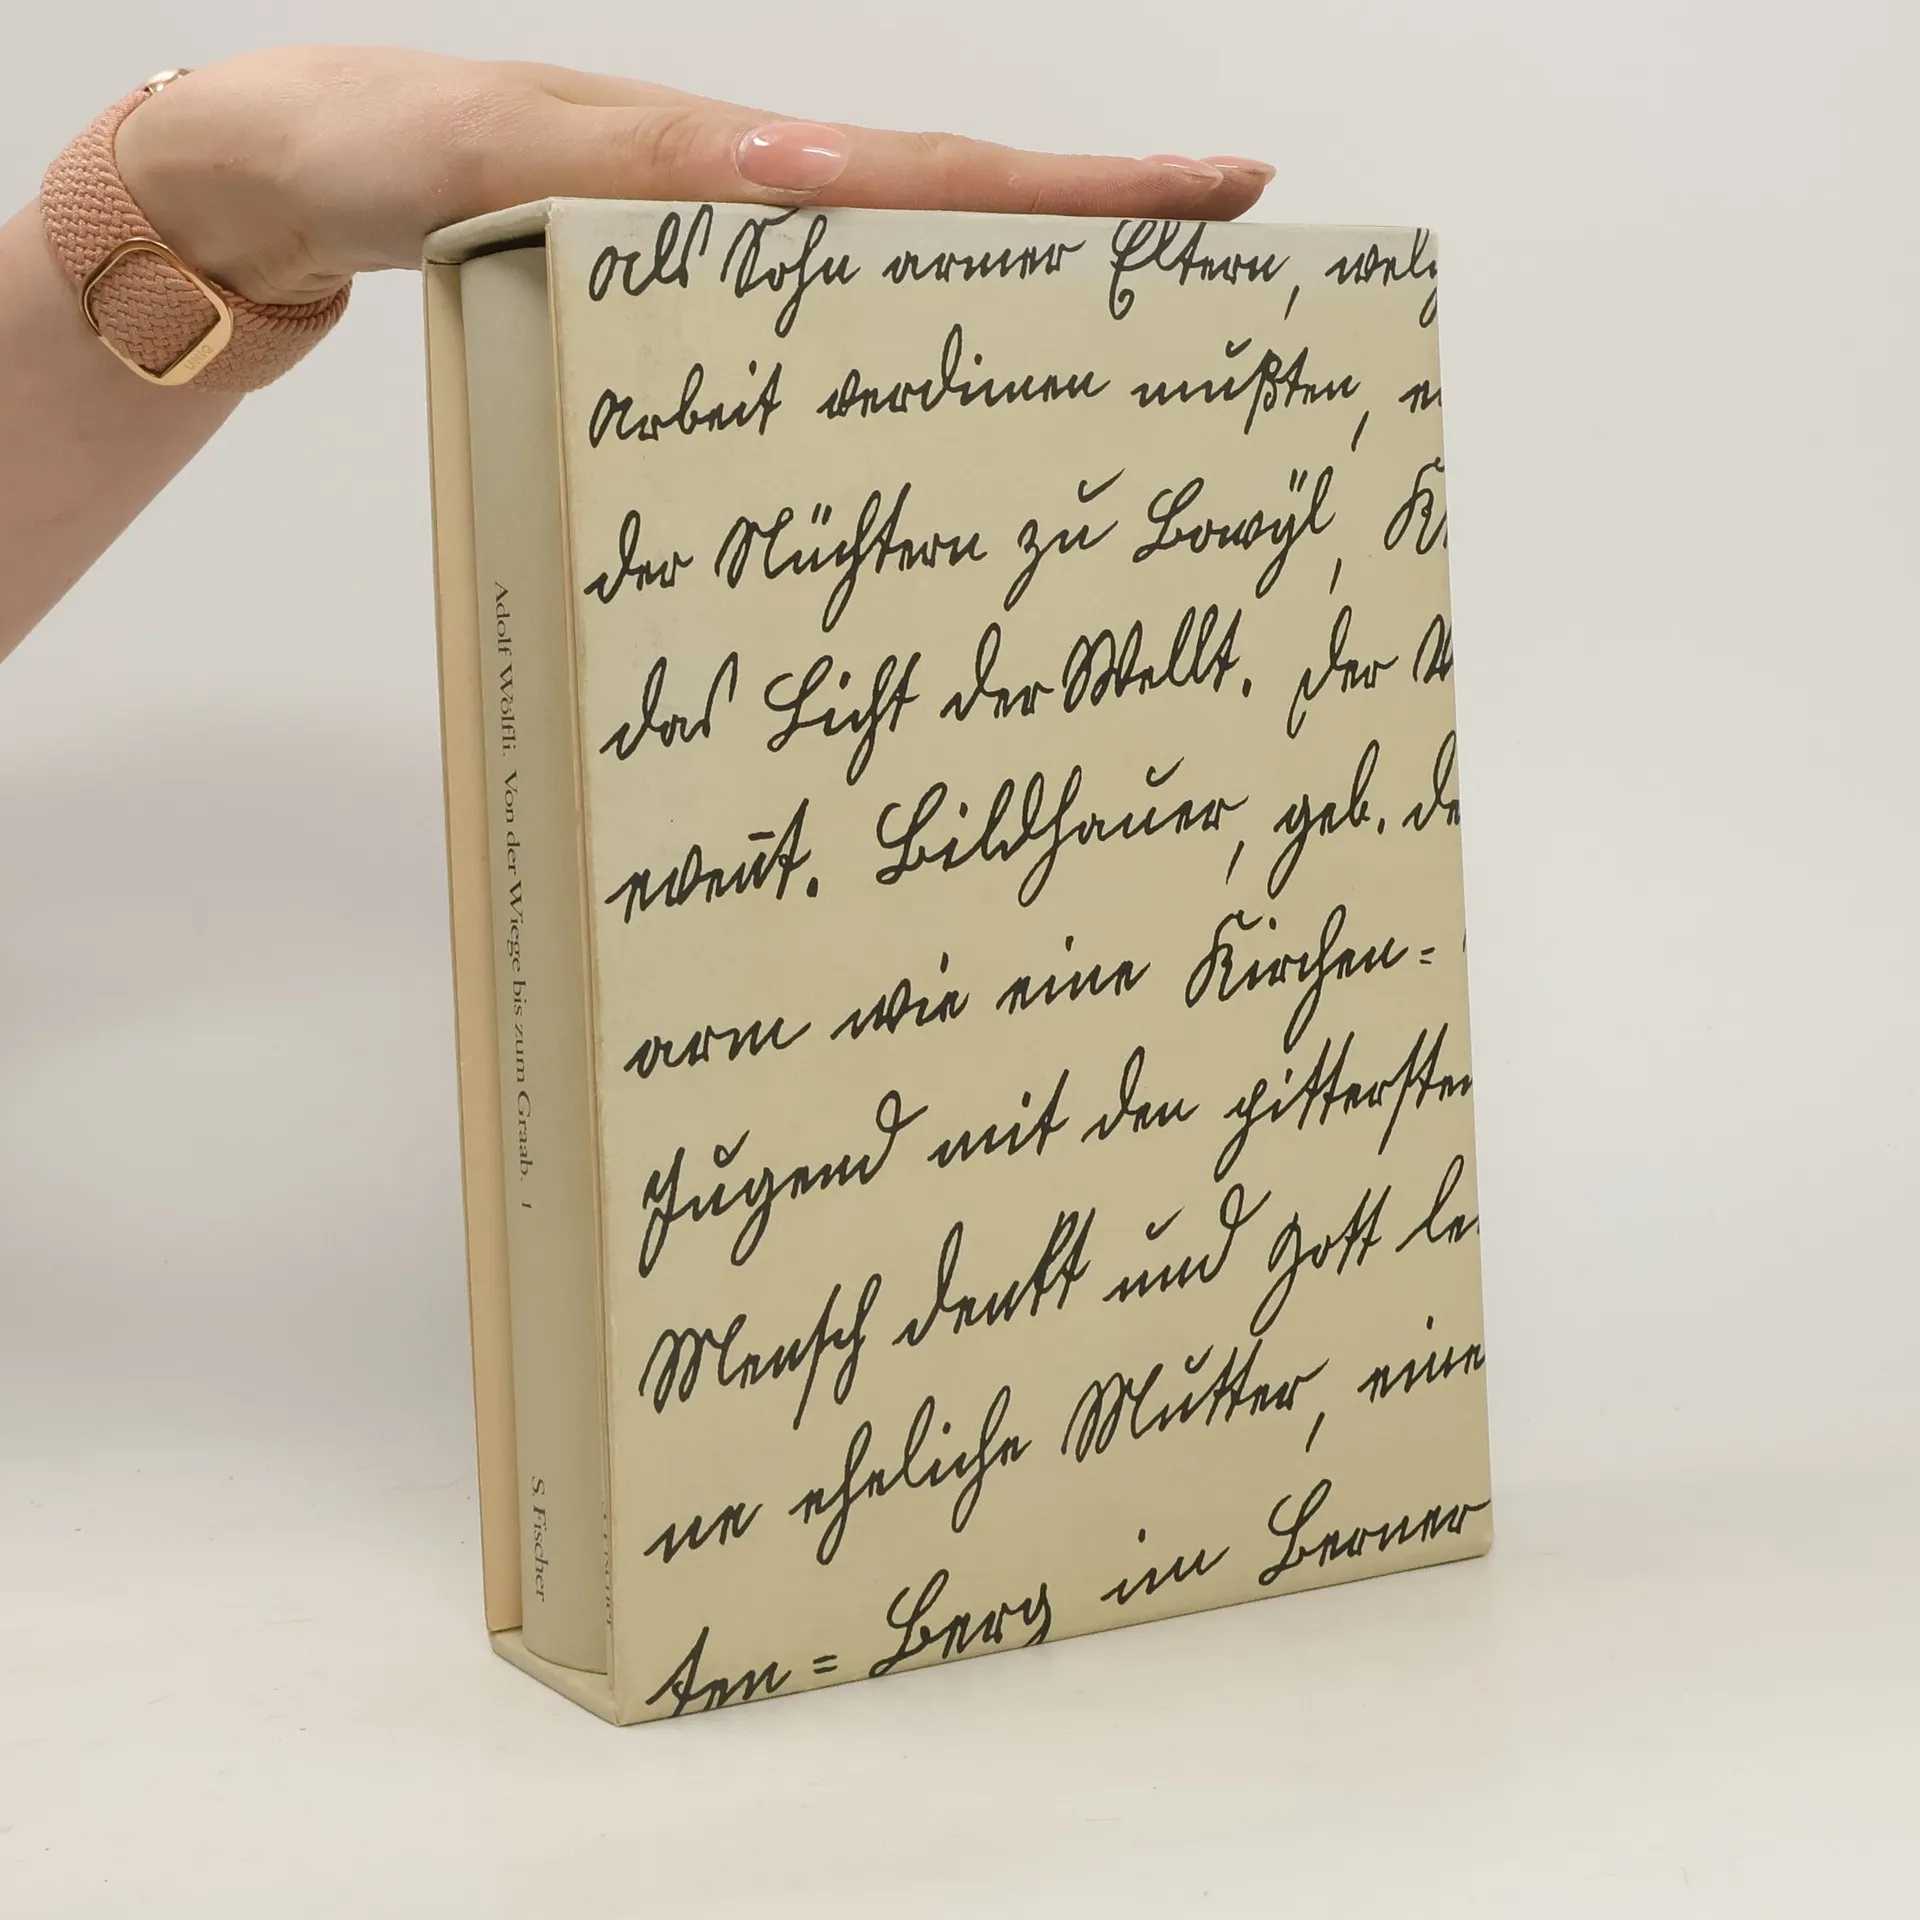 als Sohn armer Eltern, welc
Arbeit verdienen mußten, e
der Nüchtern zu Bowÿl, K
das Licht der Wellt. Der V
event. Bildhauer, geb. de
arm wie eine Kirchen=
Jugend mit den pittersten
Mensch denkt und Gott le
ne eheliche Mutter, eine
ten = Berg im Berner
Adolf Wölfli. Von der Wiege bis zum Graab. 1
S. Fischer
UNIQ